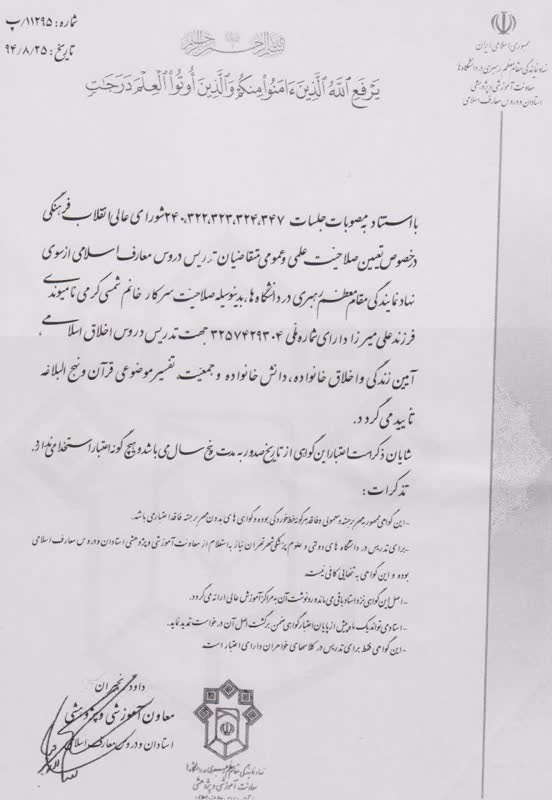 شماره: ۱۱۲۹۵/پ
تاریخ: ۹۴/۸/۲۵
جمهوری اسلامی ایران
نهاد نمایندگی مقام معظم رهبری در دانشگاه‌ها
معاونت آموزشی و پژوهشی
استادان و دروس معارف اسلامی
بسم الله الرحمن الرحیم
يَرْفَعِ ٱللَّهُ ٱلَّذِينَ ءَامَنُوا۟ مِنكُمْ وَٱلَّذِينَ أُوتُوا۟ ٱلْعِلْمَ دَرَجَاتٍ
با استناد به مصوبات جلسات ۲۴۰،۳۲۲،۳۲۳،۳۲۴،۳۴۷ شورای عالی انقلاب فرهنگی
در خصوص تعیین صلاحیت علمی و عمومی متقاضیان تدریس دروس معارف اسلامی از سوی
نهاد نمایندگی مقام معظم رهبری در دانشگاه ها، بدینوسیله صلاحیت سرکار خانم شمسی کرمی نامیوندی
فرزند علی میرزا دارای شماره ملی ۳۲۵۷۴۲۹۳۰۴ جهت تدریس دروس اخلاق اسلامی،
آیین زندگی و اخلاق خانواده، دانش خانواده و جمعیت، تفسیر موضوعی قرآن و نهج البلاغه
تأیید می گردد.
شایان ذکر است اعتبار این گواهی از تاریخ صدور به مدت پنج سال می باشد و هیچ گونه اعتبار استخدامی ندارد.
تذکرات:
-این گواهی ممهور به مهر برجسته و معمولی و فاقد هرگونه خط خوردگی بوده و گواهی های بدون مهر برجسته فاقد اعتبار می باشد.
-برای تدریس در دانشگاه های دولتی و علوم پزشکی شهر تهران نیاز به استعلام از معاونت آموزشی و پژوهشی استادان و دروس معارف اسلامی
بوده و این گواهی به تنهایی کافی نیست
-اصل این گواهی نزد استاد باقی می ماند و رونوشت آن به مراکز آموزش عالی ارائه می گردد.
-استاد می تواند یک ماه پیش از پایان اعتبار گواهی ضمن برگشت اصل آن درخواست تمدید نماید.
-این گواهی فقط برای تدریس در کلاسهای خواهران دارای اعتبار است
داود مهران
معاون آموزشی و پژوهشی
استادان و دروس معارف اسلامی
نهاد نمایندگی مقام معظم رهبری در دانشگاه‌ها
معاونت آموزشی و پژوهشی